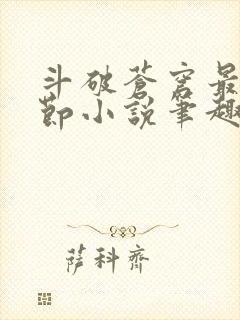 斗破蒼穹最
節小說筆趣
薩科齊